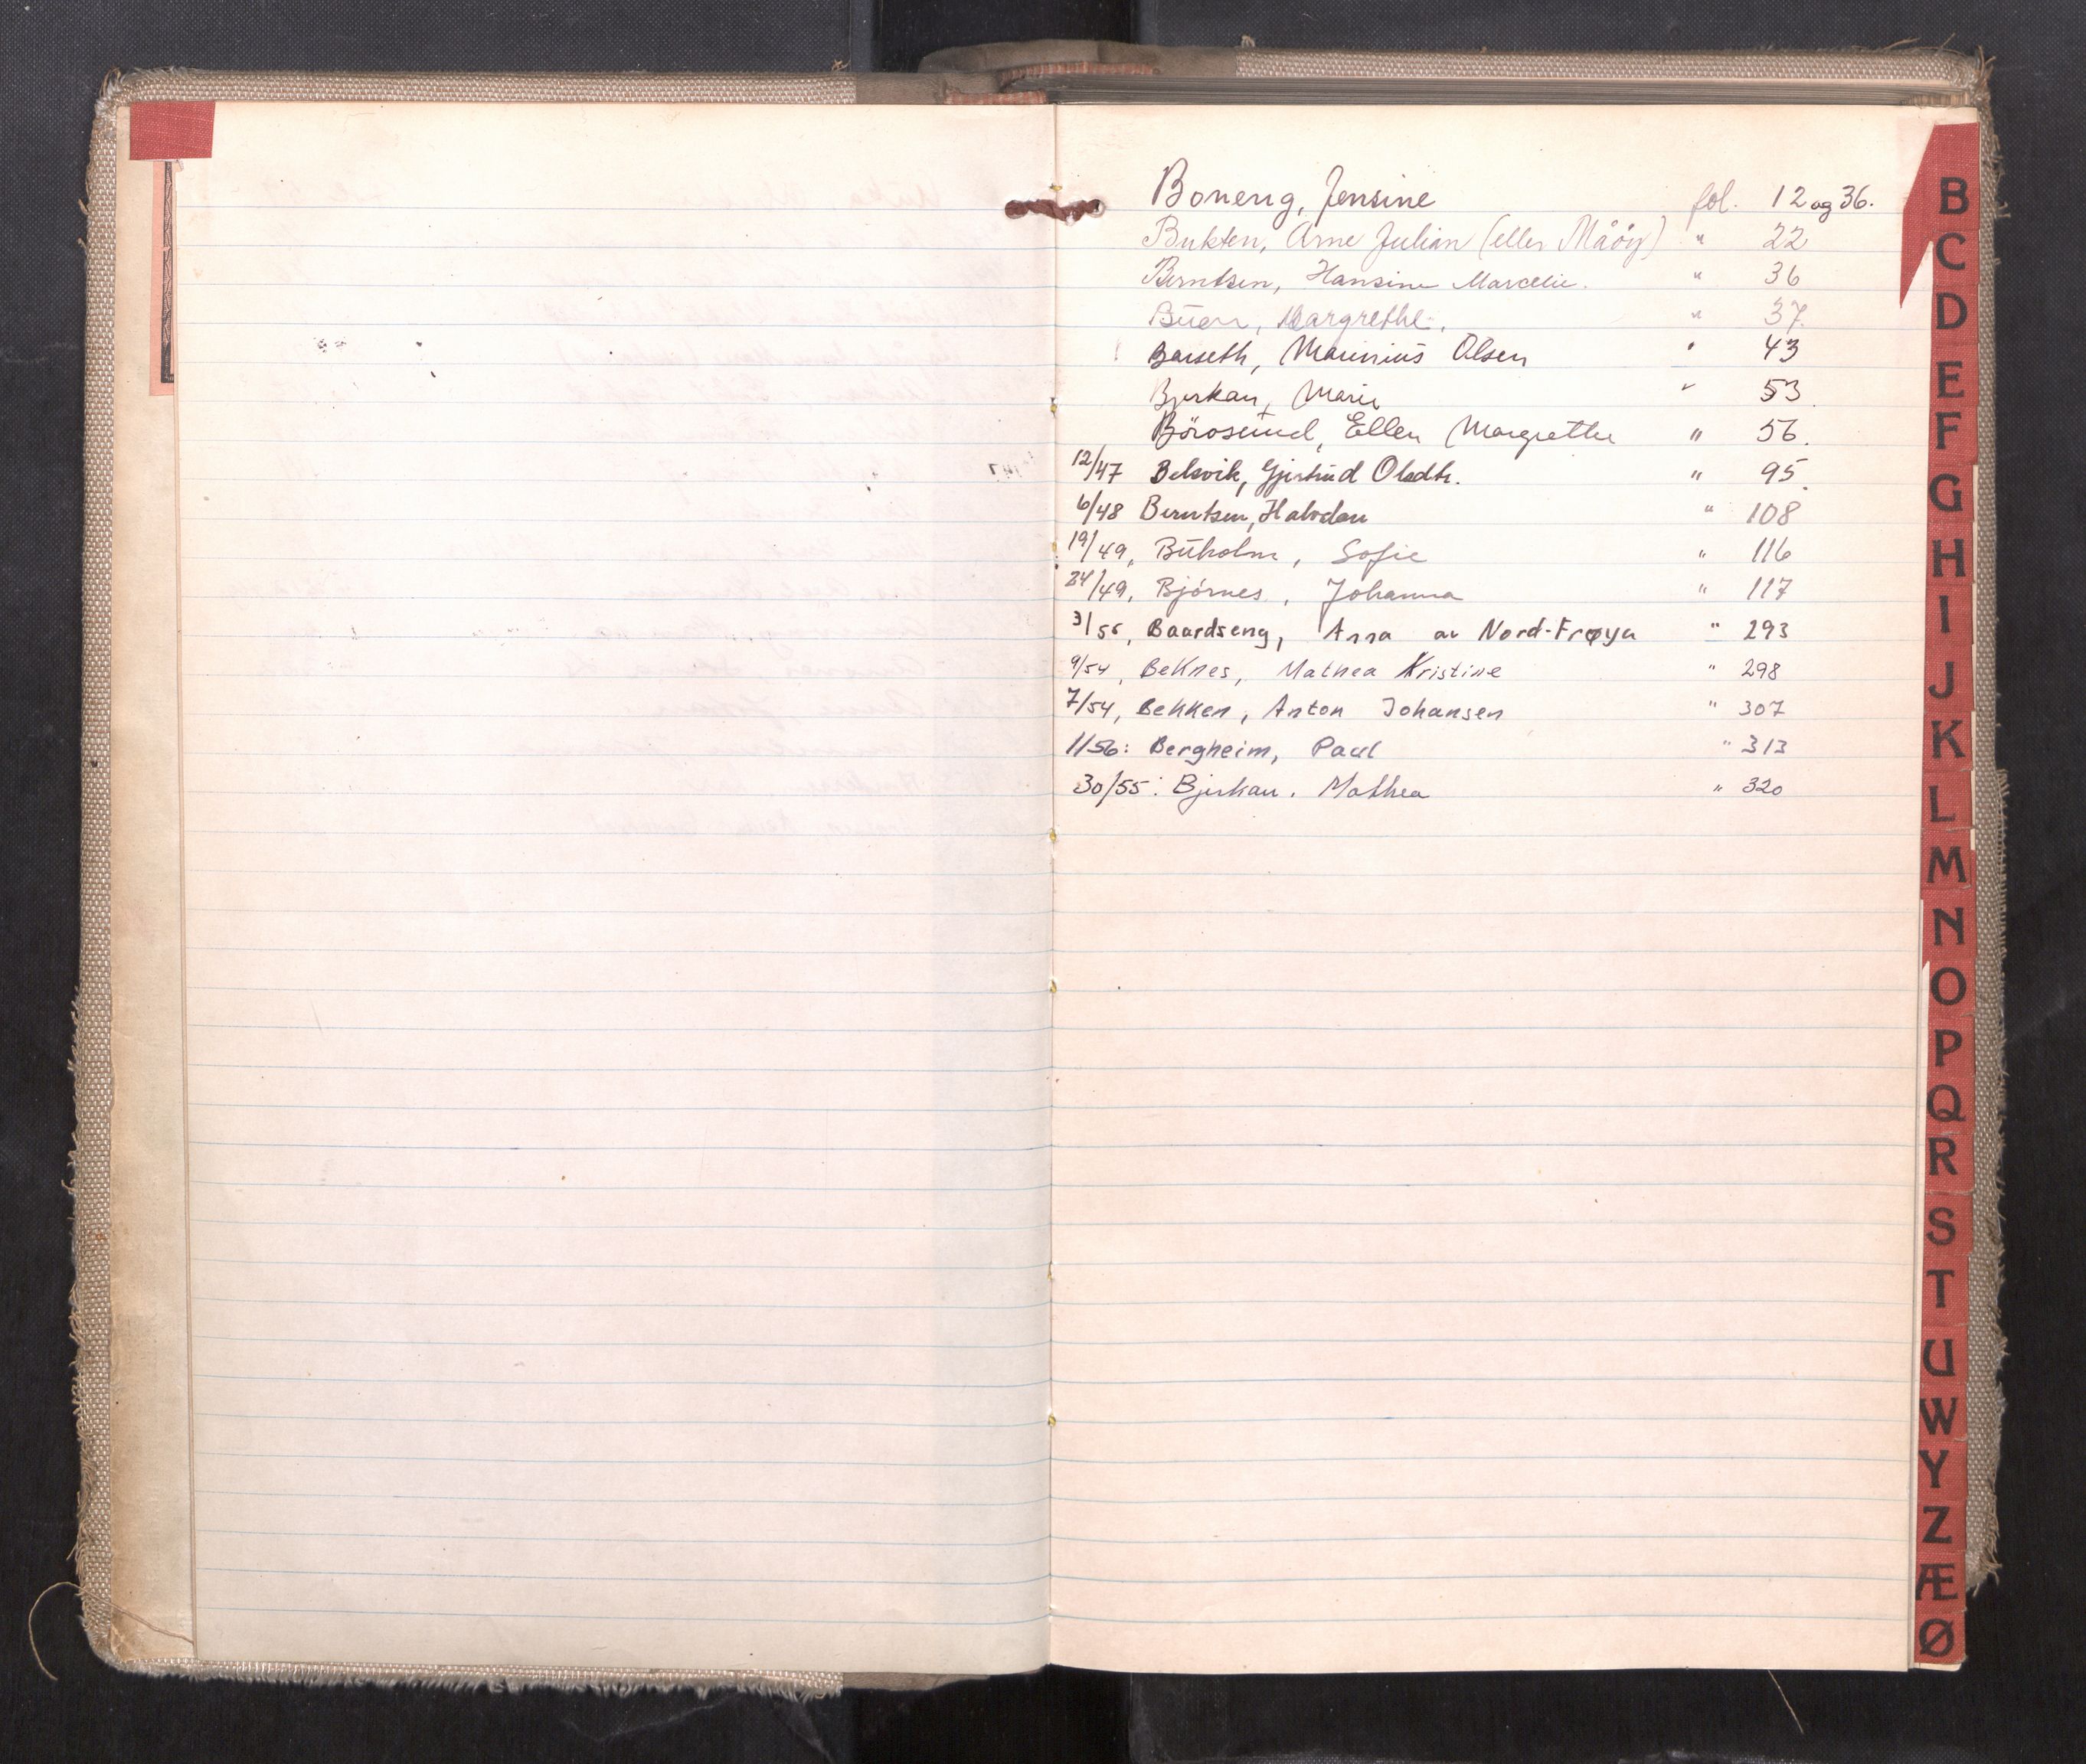 Boneng, Jensine fol. 12 og 36.
Bukten, Arne Julian (eller Måöy) " 22
Berntsen, Hansine Marcelie. " 36
Buen, Margrethe. " 37.
Barseth, Marinius Olsen " 43
Bjerkan, Marie " 53.
Börosund, Ellen Margrethe " 56.
12/47 Belsvik, Gjertrud Olsdtr. " 95.
6/48 Berntsen, Halvdan " 108
19/49, Buholm, Sofie " 116
24/49, Bjórnes, Johanna " 117
3/55, Baardseng, Anna av Nord-Frøya " 293
9/54, Beknes, Mathea Kristine " 298
7/54, Bekken, Anton Johansen " 307
1/56: Bergheim, Paul " 313
30/55: Bjerkan. Mathea " 320
B
C
D
E
F
G
H
I
J
K
L
M
N
O
P
Q
R
S
T
U
W
Y
Z
Æ
Ø